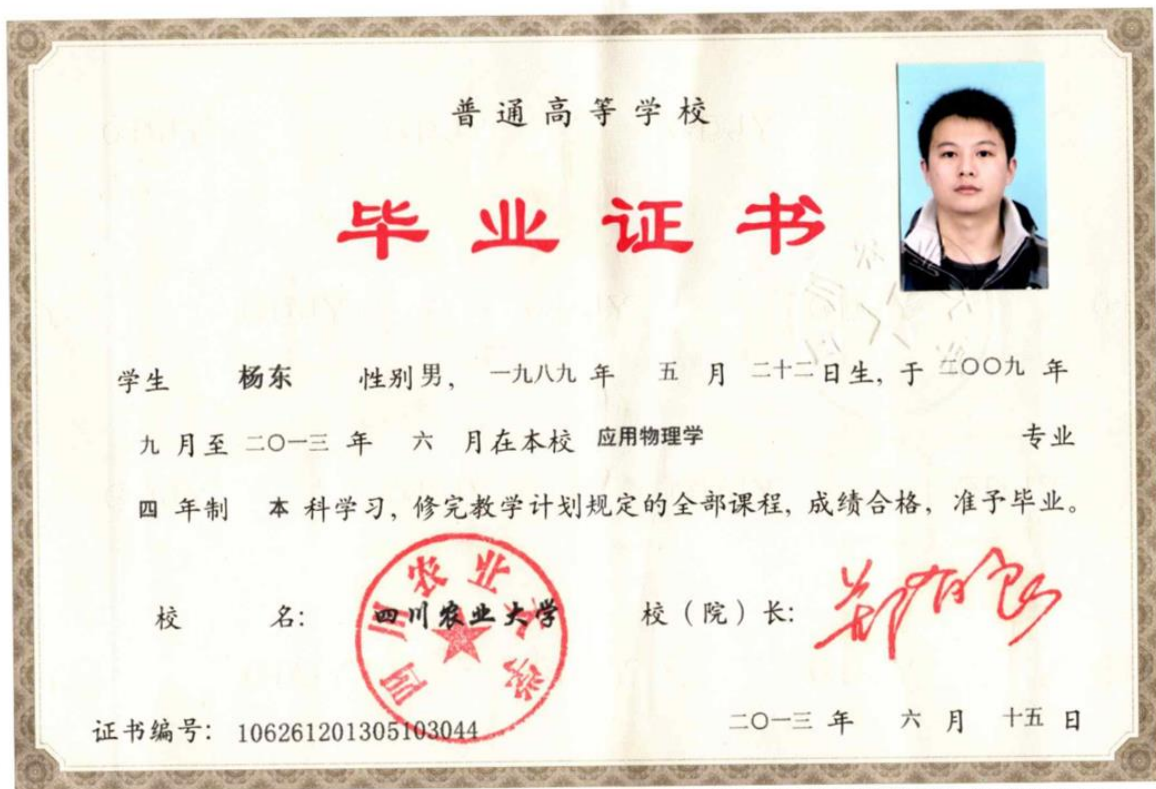 普通高等学校
毕业证书
学生 杨东 性别男, 一九八九年 五月 二十二日生, 于 二〇〇九年
九月至 二〇一三年 六月在本校 应用物理学 专业
四年制 本科学习, 修完教学计划规定的全部课程, 成绩合格, 准予毕业。
校 名: 四川农业大学 校(院)长: 郑有良
四川农业大学
证书编号: 106261201305103044 二〇一三年 六月 十五日